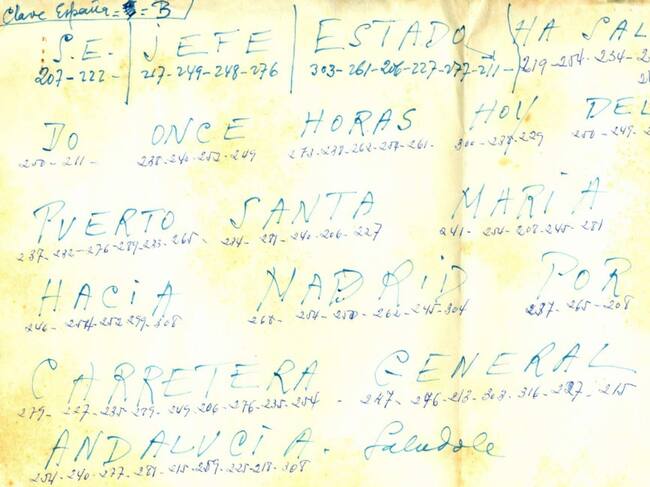 Clave España = B
S.E. JEFE ESTADO HA SAL
207-222- 217-249-248-276 303-261-206-227-277-211- 219-254-234-2
DO ONCE HORAS HOY DEL
250-211- 238-240-252-249 273-238-262-257-261- 300-238-229 250-249-2
PUERTO SANTA MARIA
237-232-276-289-233-265- 234-281-240-206-227 241-254-208-245-281
HACIA MADRID POR
246-254-252-299-308 260-254-250-262-245-304 237-265-208
CARRETERA - GENERAL
279-227-235-289-249-206-276-235-254 - 247-276-213-303-316-227-215
ANDALUCIA. Saludole
254-240-277-281-215-289-225-218-308